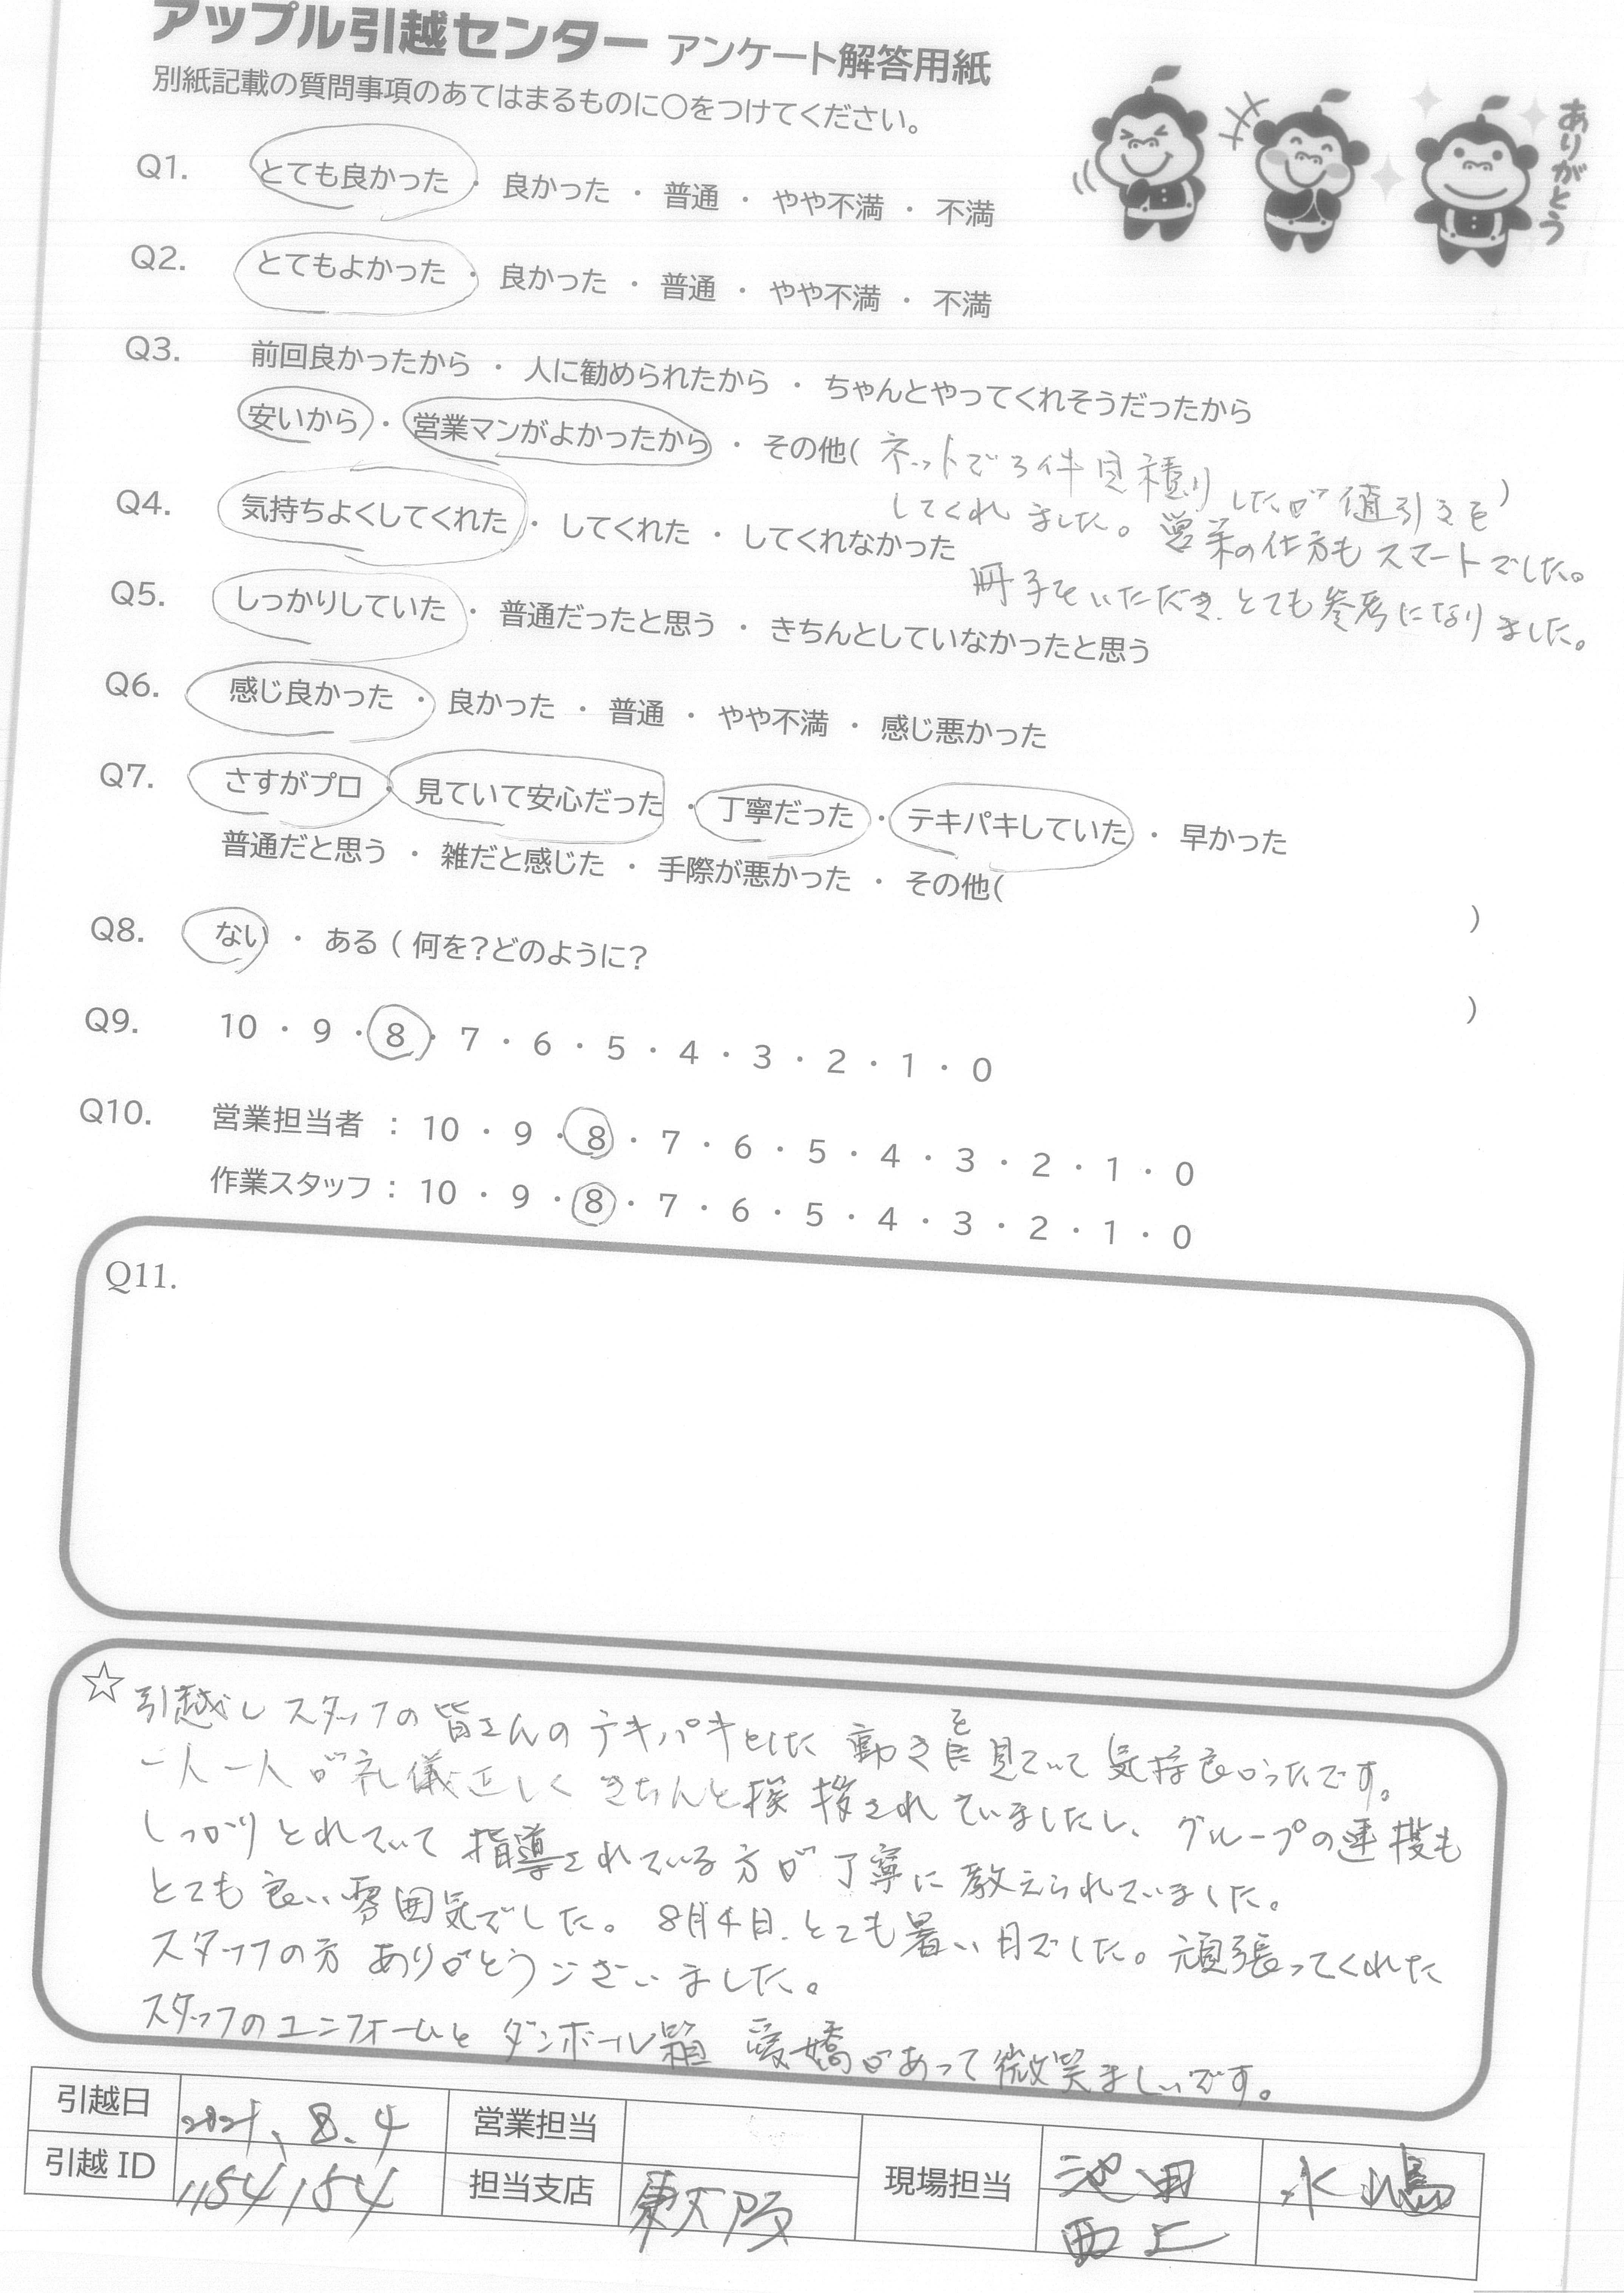 アップル引越センター アンケート解答用紙
別紙記載の質問事項のあてはまるものに○をつけてください。
ありがとう
Q1. とても良かった ・ 良かった ・ 普通 ・ やや不満 ・ 不満
Q2. とてもよかった ・ 良かった ・ 普通 ・ やや不満 ・ 不満
Q3. 前回良かったから ・ 人に勧められたから ・ ちゃんとやってくれそうだったから
安いから ・ 営業マンがよかったから ・ その他( ネットで3件見積りしたが値引きを )
してくれました。営業の仕方もスマートでした。
冊子をいただき、とても参考になりました。
Q4. 気持ちよくしてくれた ・ してくれた ・ してくれなかった
Q5. しっかりしていた ・ 普通だったと思う ・ きちんとしていなかったと思う
Q6. 感じ良かった ・ 良かった ・ 普通 ・ やや不満 ・ 感じ悪かった
Q7. さすがプロ ・ 見ていて安心だった ・ 丁寧だった ・ テキパキしていた ・ 早かった
普通だと思う ・ 雑だと感じた ・ 手際が悪かった ・ その他( )
Q8. ない ・ ある ( 何を?どのように? )
Q9. 10 ・ 9 ・ 8 ・ 7 ・ 6 ・ 5 ・ 4 ・ 3 ・ 2 ・ 1 ・ 0
Q10. 営業担当者 : 10 ・ 9 ・ 8 ・ 7 ・ 6 ・ 5 ・ 4 ・ 3 ・ 2 ・ 1 ・ 0
作業スタッフ : 10 ・ 9 ・ 8 ・ 7 ・ 6 ・ 5 ・ 4 ・ 3 ・ 2 ・ 1 ・ 0
Q11.
☆引越しスタッフの皆さんのテキパキとした動きを見ていて気持良かったです。
一人一人が礼儀正しくきちんと挨拶されていましたし、グループの連携も
しっかりとれていて指導されている方が丁寧に教えられていました。
とても良い雰囲気でした。8月4日、とても暑い日でした。頑張ってくれた
スタッフの方ありがとうございました。
スタッフのユニフォームとダンボール箱 愛嬌があって微笑ましいです。
引越日 2021、8、4 営業担当
引越ID 1154154 担当支店 東大阪 現場担当 池田 水嶋
西上